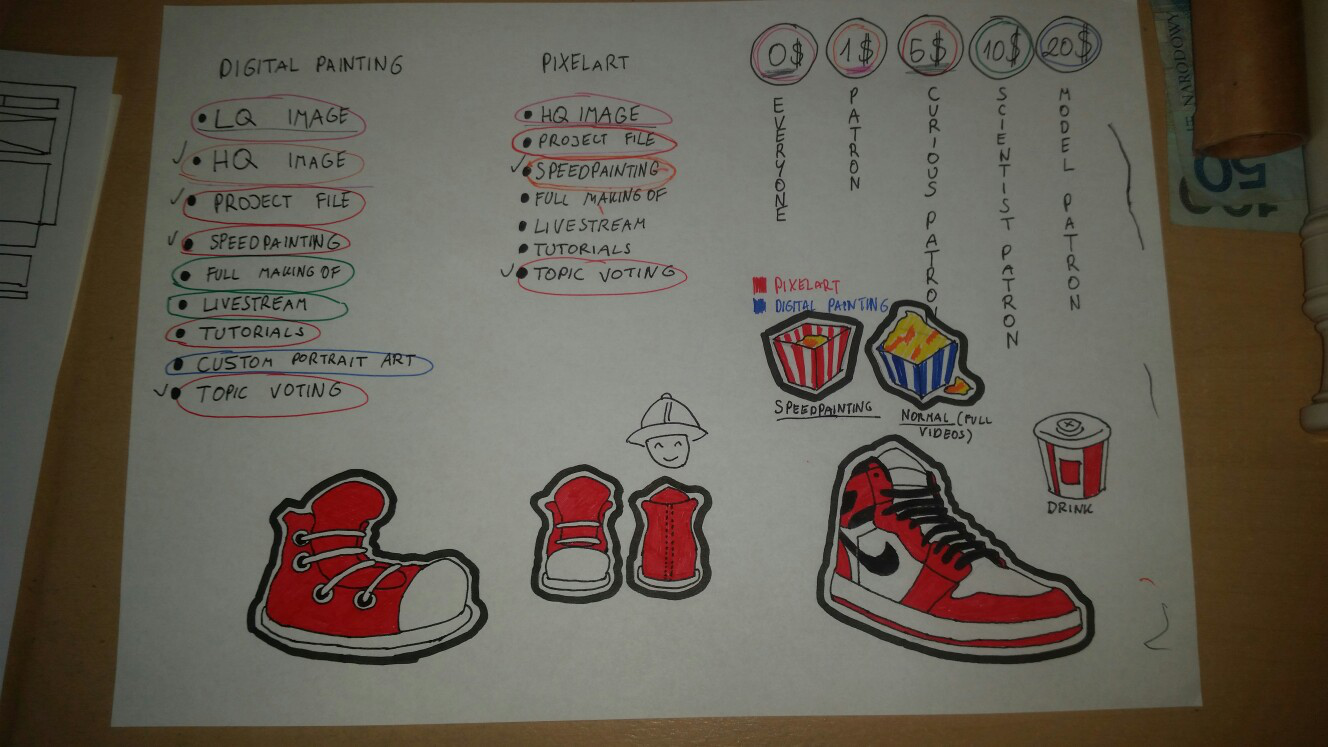 DIGITAL PAINTING
LQ IMAGE
HQ IMAGE
PROJECT FILE
SPEEDPAINTING
FULL MAKING OF
LIVESTREAM
TUTORIALS
CUSTOM PORTRAIT ART
TOPIC VOTING
PIXELART
HQ IMAGE
PROJECT FILE
SPEEDPAINTING
FULL MAKING OF
LIVESTREAM
TUTORIALS
TOPIC VOTING
0$ 1$ 5$ 10$ 20$
EVERYONE
PATRON
CURIOUS PATRON
SCIENTIST PATRON
MODEL PATRON
PIXELART
DIGITAL PAINTING
SPEEDPAINTING
NORMAL (FULL
VIDEOS)
DRINK
NARODOWY
50